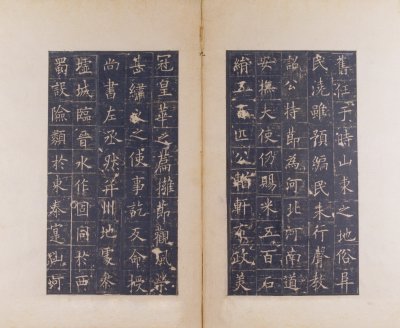 舊任于時山東之地俗異
民澆雖預編民未行聲教
詔公持節為河北河南道
安撫大使仍賜米五百石
絹五百匹公輶軒布政美
冠皇華之篇擁節觀風樂
甚繡衣之使事訖反命授
尚書左丞然并州地處參
墟城臨晉水作固同於西
蜀設險類於東秦寔山河